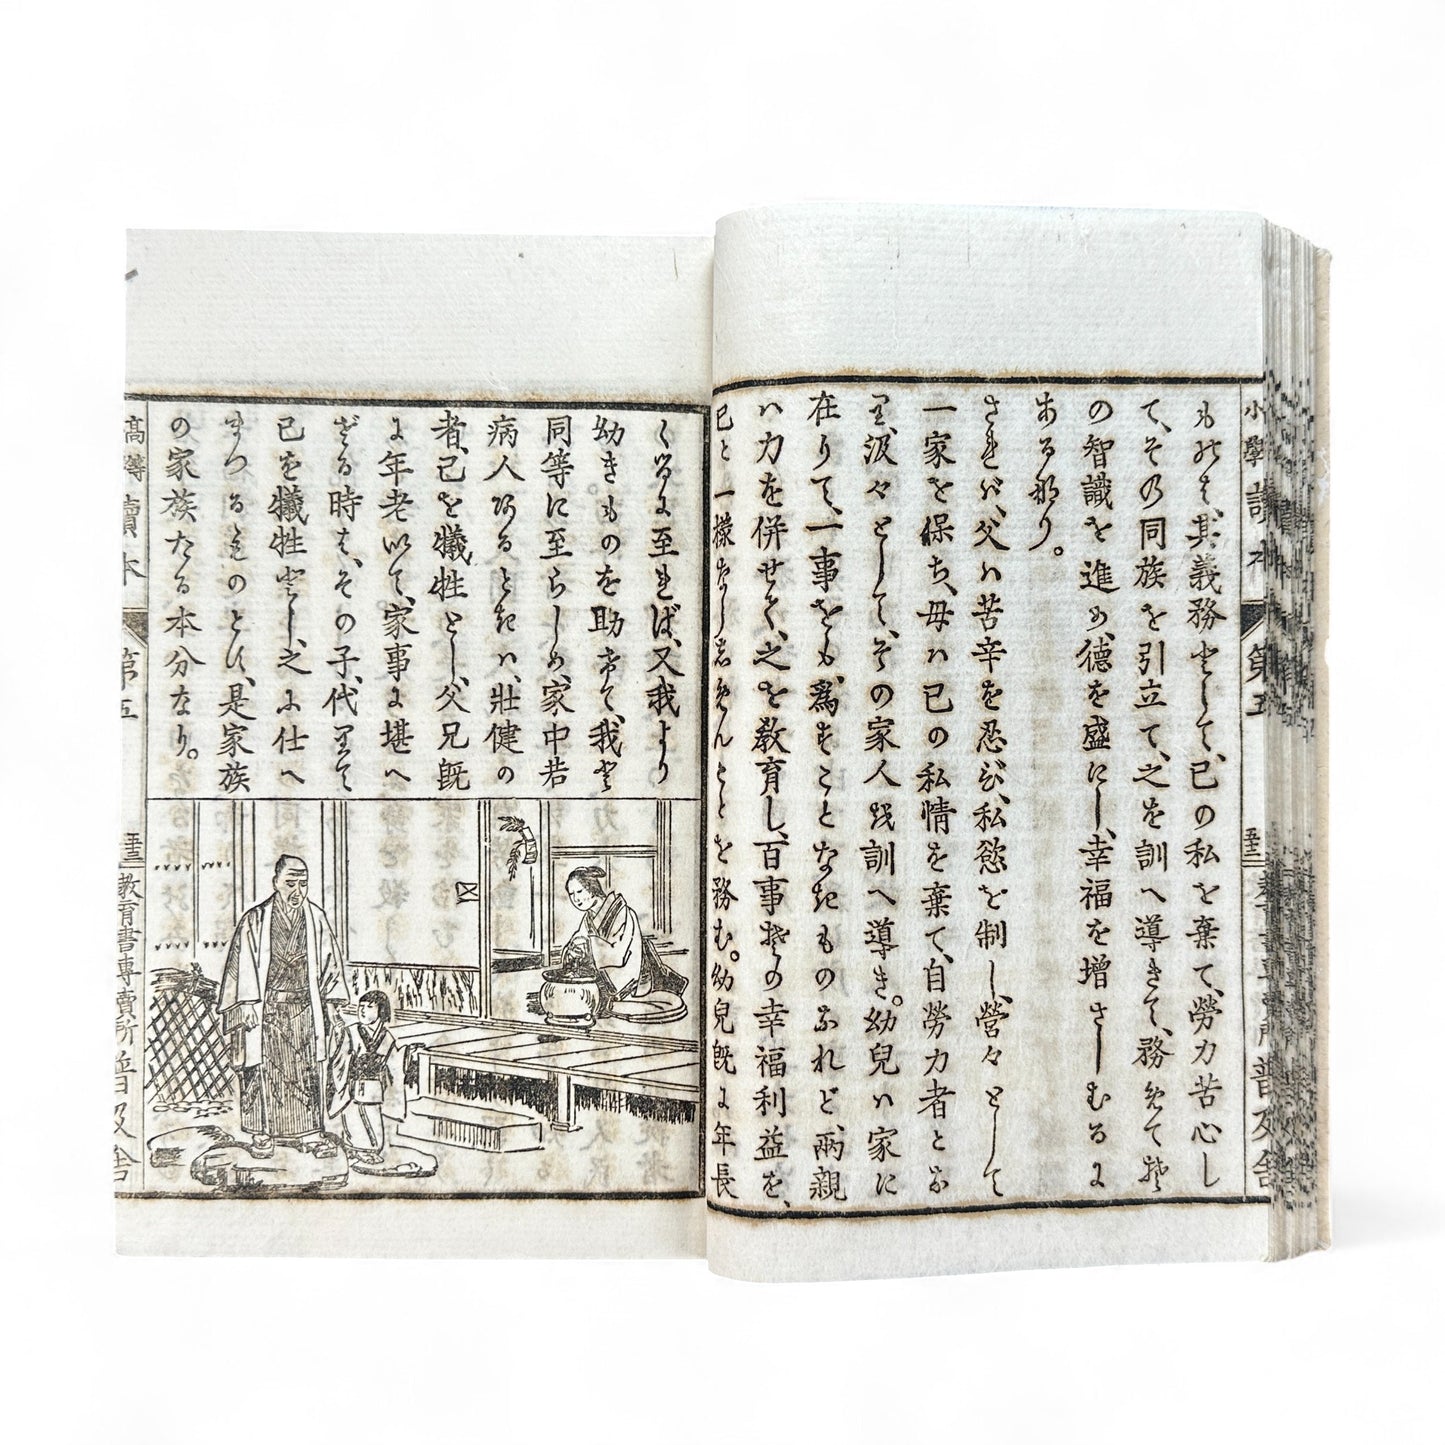 小學讀本
第五
五十三
普及舍
ものは、其義務として、己の私を棄て、勞力苦心し
て、その同族を引立て、之を訓へ導きて、務めて其
の智識を進め、徳を盛にし、幸福を増さしむるに
ある那り。
されバ、父ハ苦辛を忍び、私慾を制し、營々として
一家を保ち、母ハ己の私情を棄て、自勞力者とな
り、汲々として、その家人を訓へ導き。幼兒ハ家に
在りて、一事をも、爲すことなきものなれど、兩親
ハ力を併せて、之を教育し、百事其の幸福利益を、
己と一様ならしめんことを務む。幼兒既に年長
くるに至れば、又我より
幼きものを助けて、我と
同等に至らしめ、家中若
病人あるときハ、壯健の
者、己を犧牲とし、父兄既
に年老いて、家事に堪へ
ざる時は、その子、代りて
己を犧牲とし、之に仕へ
まつるものとす、是家族
の家族たる本分なり。
高等讀本
第五
五十三
教育書專賣所普及舍